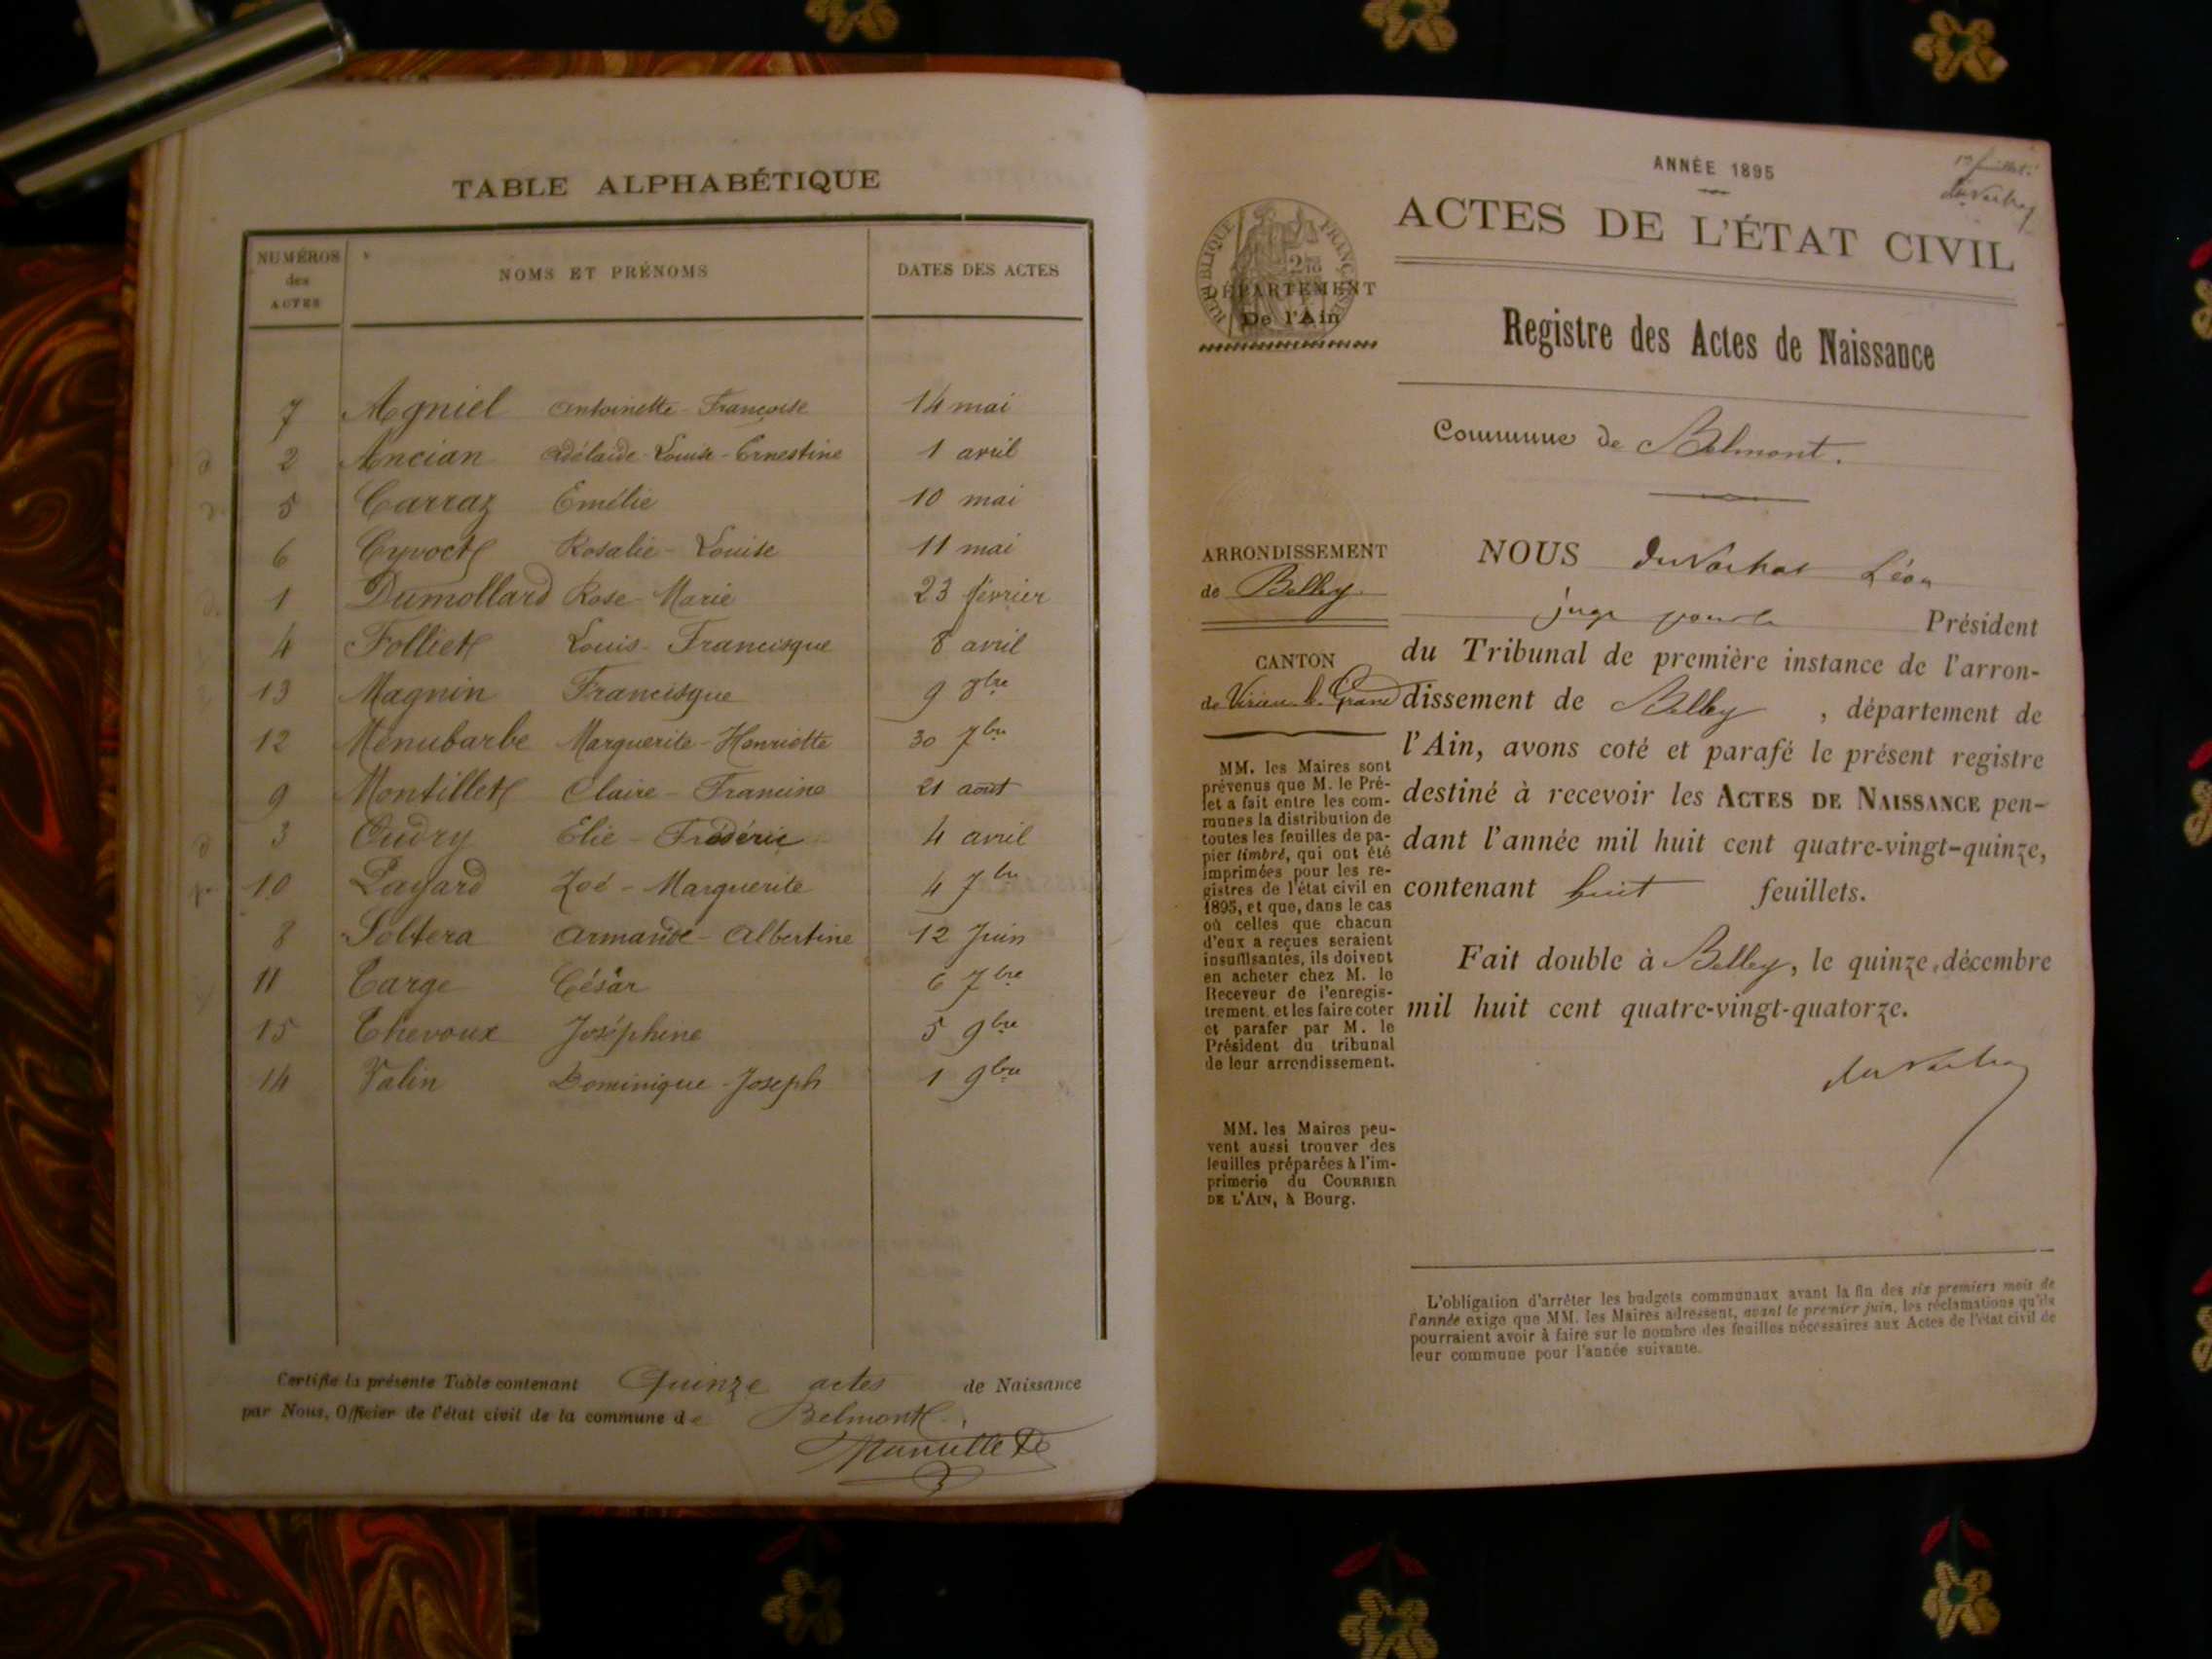 TABLE ALPHABÉTIQUE
NUMÉROS
des
ACTES
NOMS ET PRÉNOMS
DATES DES ACTES
7 Agniel Antoinette - Françoise 14 mai
2 Ancian Adélaïde - Louise - Ernestine 1 avril
5 Carraz Emélie 10 mai
6 Cyvoct Rosalie - Louise 11 mai
1 Dumollard Rose - Marie 23 février
4 Folliet Louis - Francisque 8 avril
13 Magnin Francisque 9 8bre
12 Menubarbe Marguerite - Henriette 30 7bre
9 Montillet Claire - Francine 21 août
3 Oudry Elie - Frédéric 4 avril
10 Payard Zoé - Marguerite 4 7bre
8 Soltera Armande - Albertine 12 Juin
11 Targe César 6 7bre
15 Thevoux Joséphine 5 9bre
14 Valin Dominique - Joseph 1 9bre
Certifie la présente Table contenant Quinze actes de Naissance
par Nous, Officier de l'état civil de la commune de Belmont
ANNÉE 1895
ACTES DE L'ÉTAT CIVIL
RÉPUBLIQUE FRANÇAISE
DÉPARTEMENT
De l'Ain
Registre des Actes de Naissance
Commune de Belmont.
ARRONDISSEMENT
de Belley
CANTON
de Virieu le Grand
MM. les Maires sont
prévenus que M. le Pré-
fet a fait entre les com-
munes la distribution de
toutes les feuilles de pa-
pier timbré, qui ont été
imprimées pour les re-
gistres de l'état civil en
1895, et que, dans le cas
où celles que chacun
d'eux a reçues seraient
insuffisantes, ils doivent
en acheter chez M. le
Receveur de l'enregis-
trement, et les faire coter
et parafer par M. le
Président du tribunal
de leur arrondissement.
MM. les Maires peu-
vent aussi trouver des
feuilles préparées à l'im-
primerie du COURRIER
DE L'AIN, à Bourg.
NOUS Léon
juge pour le Président
du Tribunal de première instance de l'arron-
dissement de Belley, département de
l'Ain, avons coté et parafé le présent registre
destiné à recevoir les ACTES DE NAISSANCE pen-
dant l'année mil huit cent quatre-vingt-quinze,
contenant huit feuillets.
Fait double à Belley, le quinze décembre
mil huit cent quatre-vingt-quatorze.
L'obligation d'arrêter les budgets communaux avant la fin des six premiers mois de
l'année exige que MM. les Maires adressent, avant le premier juin, les réclamations qu'ils
pourraient avoir à faire sur le nombre des feuilles nécessaires aux Actes de l'état civil de
leur commune pour l'année suivante.